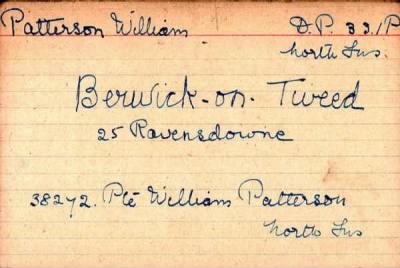 Patterson William D.P. 331P
North Fus.
Berwick-on-Tweed
25 Ravensdowne
38272. Pte William Patterson
North Fus